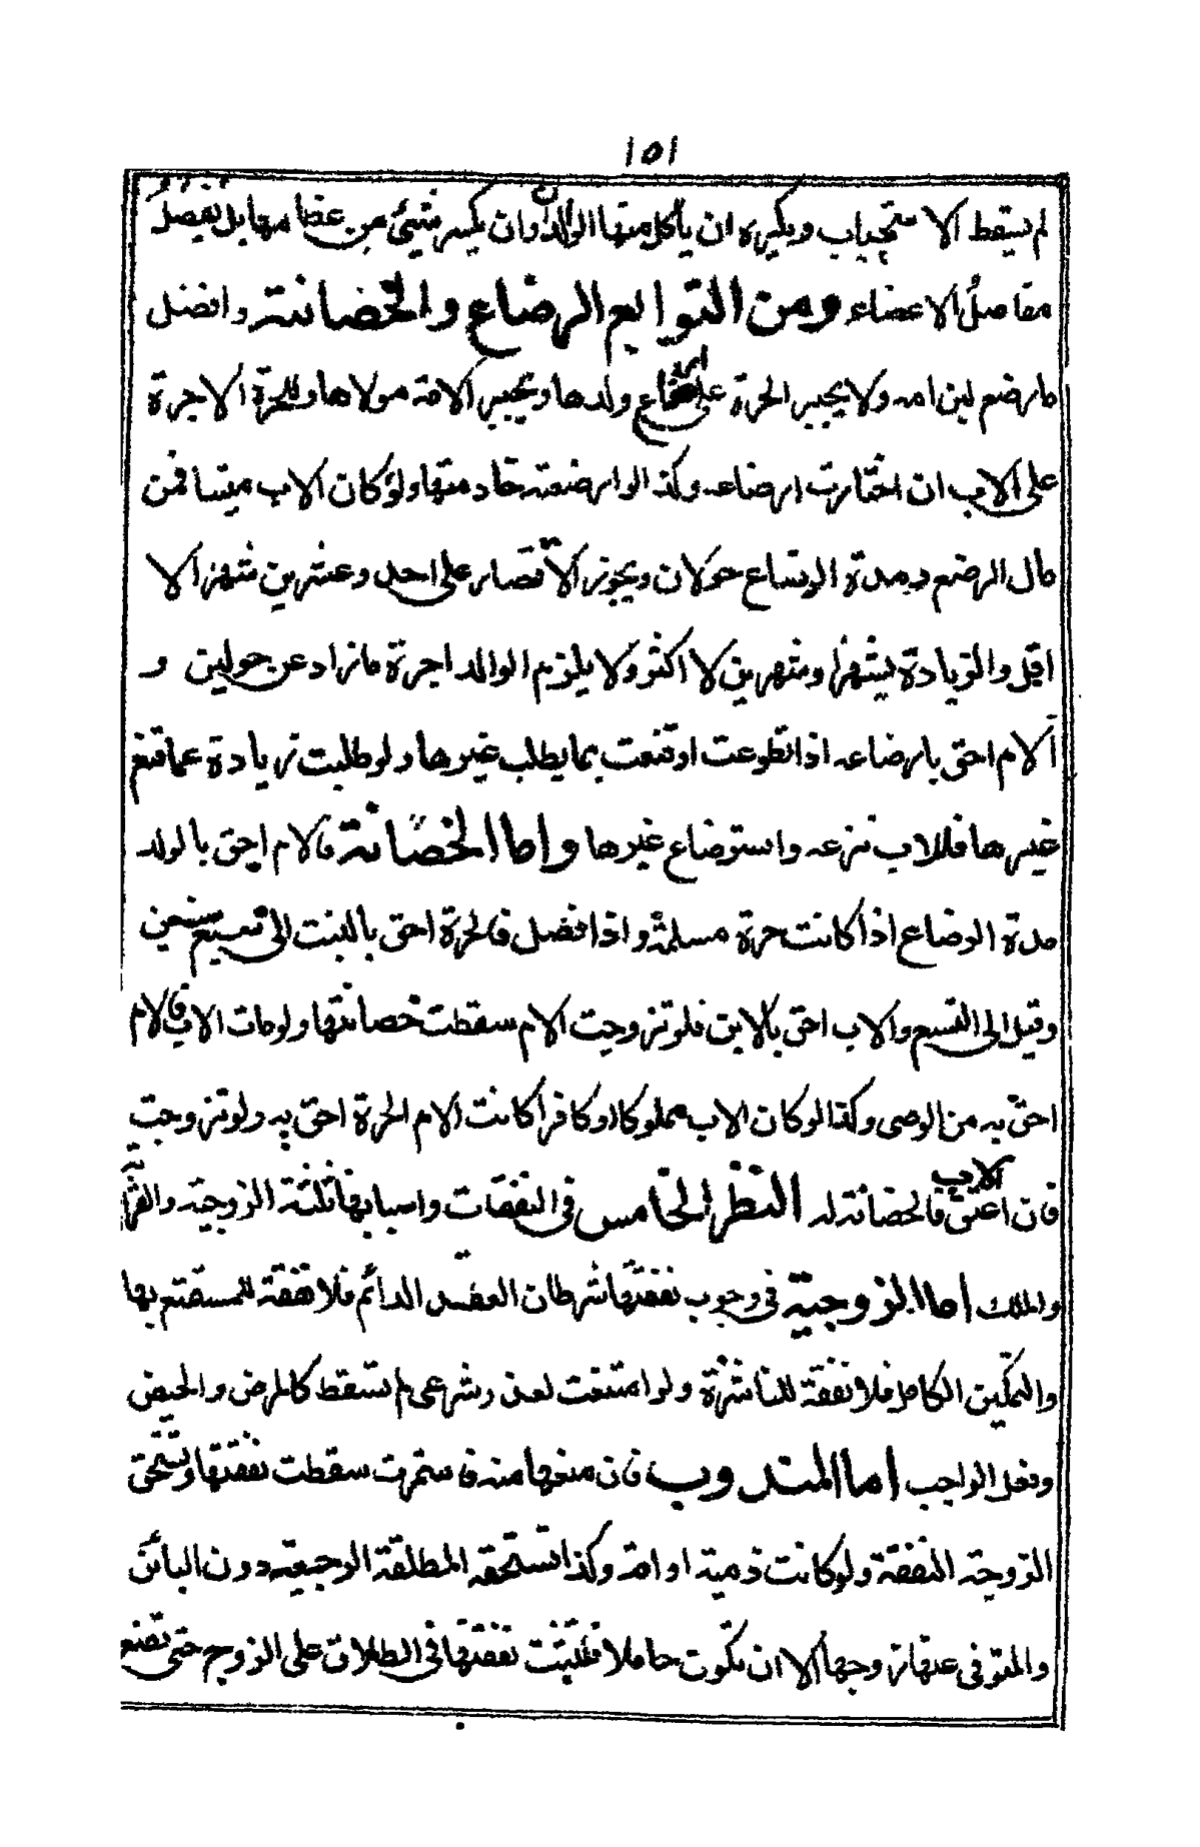 ١٥١
لم يسقط الاستحباب ويكره ان يأكل منها الوالدان وان يكسر شيئ من عظامها بل تفصل
مفاصل الاعضاء ومن التوابع الرضاع والحضانة وافضل
ما رضع لبن امه ولا يجبر الحرة على ارضاع ولدها وتجبر الامة مولاها وللحرة الاجرة
على الاب ان اختارت ارضاعه وكذا لو ارضعته خادمتها ولو كان الاب ميتا فمن
مال الرضيع ومدة الرضاع حولان ويجوز الاقتصار على احد وعشرين شهرا لا
اقل والزيادة بشهر او شهرين لا اكثر ولا يلزم الوالد اجرة ما زاد عن حولين و
الام احق بارضاعه اذا تطوعت او قنعت بما يطلب غيرها ولو طلبت زيادة عما قنع
غيرها فللاب نزعه واسترضاع غيرها واما الحضانة فالام احق بالولد
مدة الرضاع اذا كانت حرة مسلمة واذا فصل فالحرة احق بالبنت الى سبع سنين
وقيل الى التسع والاب احق بالابن فلو تزوجت الام سقطت حضانتها ولو مات الاب فالام
احق به من الوصى وكذا لو كان الاب مملوكا او كافرا كانت الام الحرة احق به ولو تزوجت
فان اعتق الاب فالحضانة له النظر الخامس فى النفقات واسبابها ثلثة الزوجية والقرابة
والملك اما الزوجية فى وجوب نفقتها شرطان العقد الدائم فلا نفقة للمستمتع بها
والتمكين الكامل فلا نفقة للناشزة ولو امتنعت لعذر شرعى لم تسقط كالمرض والحيض
وفعل الواجب اما المندوب فان منعها منه فاستمرت سقطت نفقتها وتستحق
الزوجة النفقة ولو كانت ذمية او امة وكذا تستحقه المطلقة الرجعية دون البائن
والمتوفى عنها زوجها الا ان تكون حاملا فتثبت نفقتها فى الطلاق على الزوج حتى تضع